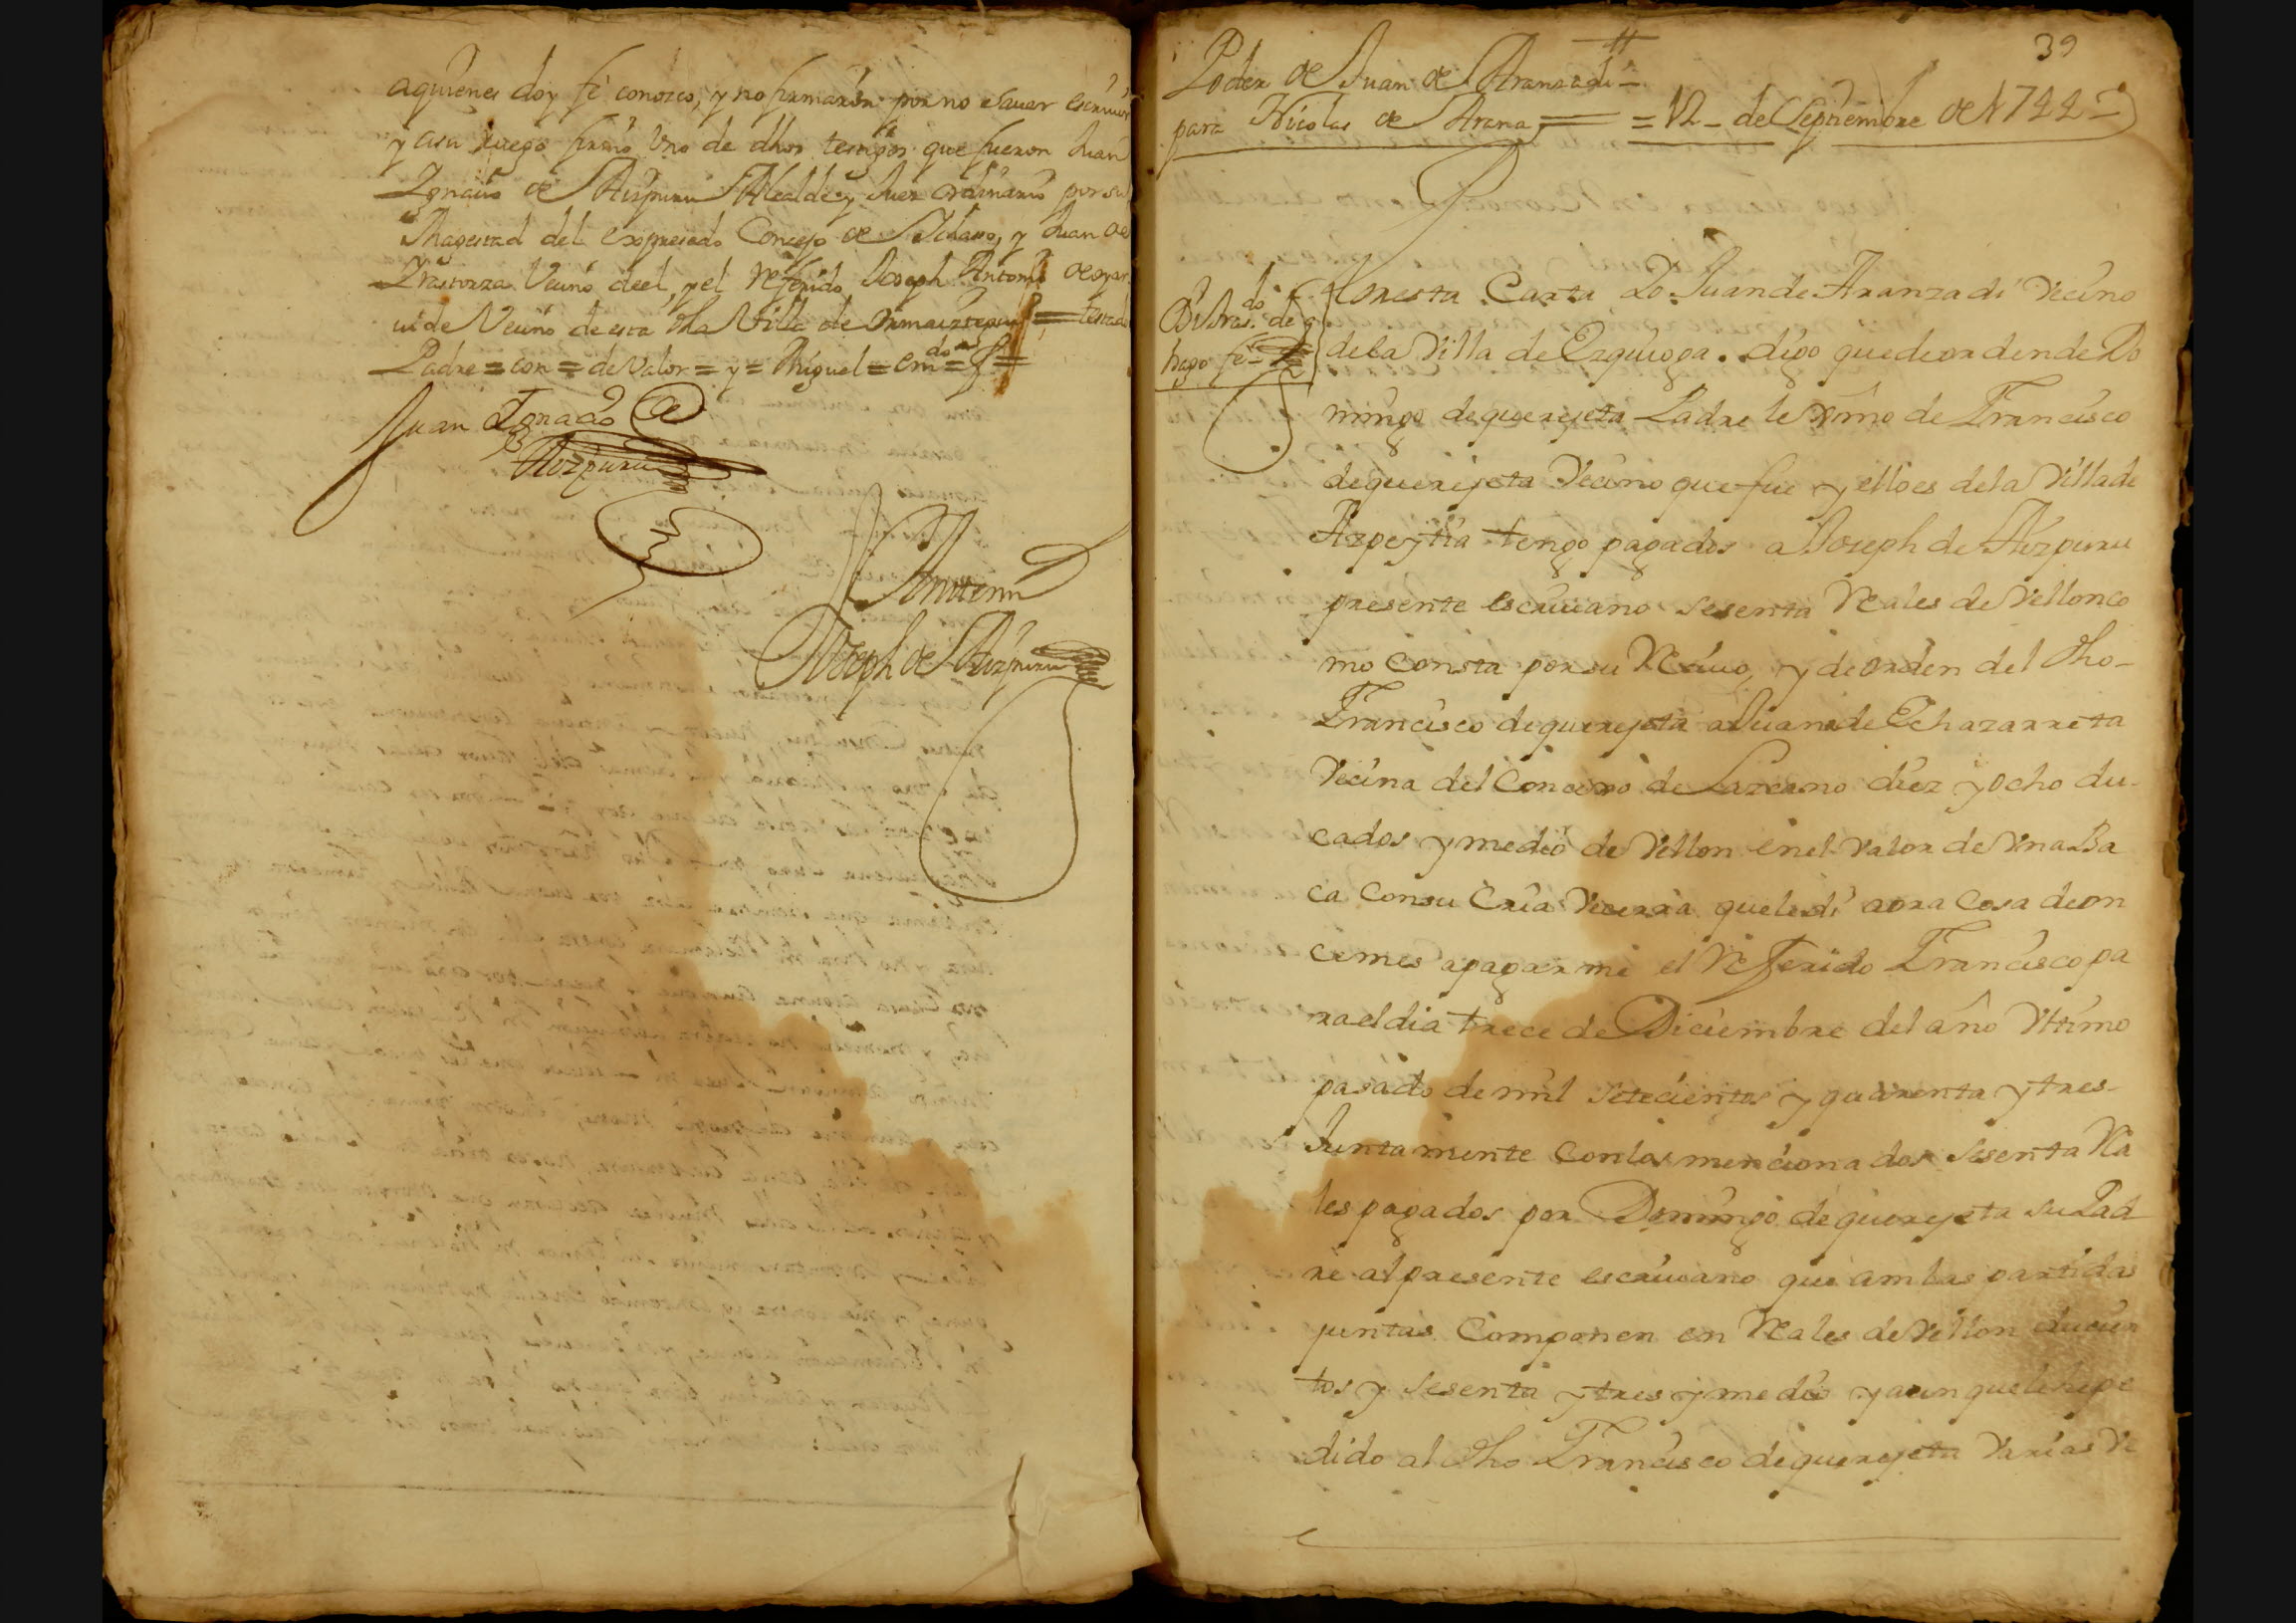 aquienes doy fe conozco, y no firmaron por no savar escriuir
y asu ruego firmó Uno de dhos testigos que fueron Juan
Ignacio de Aizpuru Alcalde y Juez ordinario por su
Magestad del expresado Concejo de y Juan de
Irastorza Vecino de el, y el referido Joseph Antonio de oyar
uide Vecino de esta dha Villa de Ormaiztegui = testado
Padre = con = de Valor = y = Miguel = emdo =
Juan Ignacio de
Aizpuru
Antemi
Joseph de Aizpuru
39
Poder de Juan de Aranzadi
para Nicolas de Arana = 12 de Septiembre de 1744
hago fe
Por esta Carta Yo Juan de Aranzadi Vecino
de la Villa de Ezquioga. digo que de orden de Do
mingo de querejeta Padre lexitimo de Francisco
de querejeta Vecino que fue y ello es de la Villa de
Azpeytia tengo pagados a Joseph de Aizpuru
presente escriuano sesenta Reales de Vellon co
mo consta por su Reciuo, y de orden del dho
Francisco de querejeta a Juana de Echazarreta
Vecina del Concexo de Lazcano diez y ocho du
cados y medio de Vellon en el Valor de Una Ba
ca con su Cria Vecerra que le di aora Cosa de on
ce mes a pagarme el Referido Francisco pa
ra el dia trece de Diciembre del año Vltimo
pasado de mil setecientos y quarenta y tres
Juntamente con los mencionados sesenta Rea
les pagados por Domingo de querejeta su Pad
re al presente escriuano que ambas partidas
juntas Componen en Reales de Vellon ducien
tos y sesenta y tres y medio y aunque le he pe
dido al dho Francisco de querejeta Varias Ve